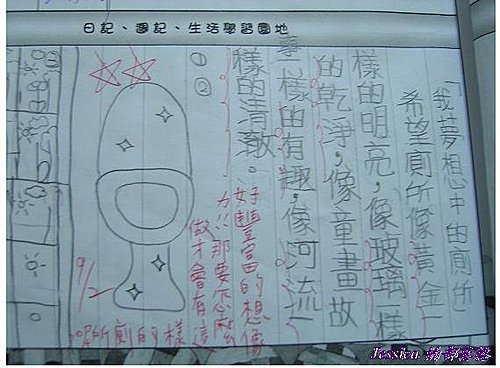 日記、週記、生活學習園地
「我夢想中的廁所」
希望廁所像黃金一
樣的明亮,像玻璃一樣
的乾淨,像童畫故
一樣的有趣,像河流一
樣的清澈。
①
②
好豐富的想像
力!!那要怎麼
做才會有這
的廁所呢
9/2
Jessica